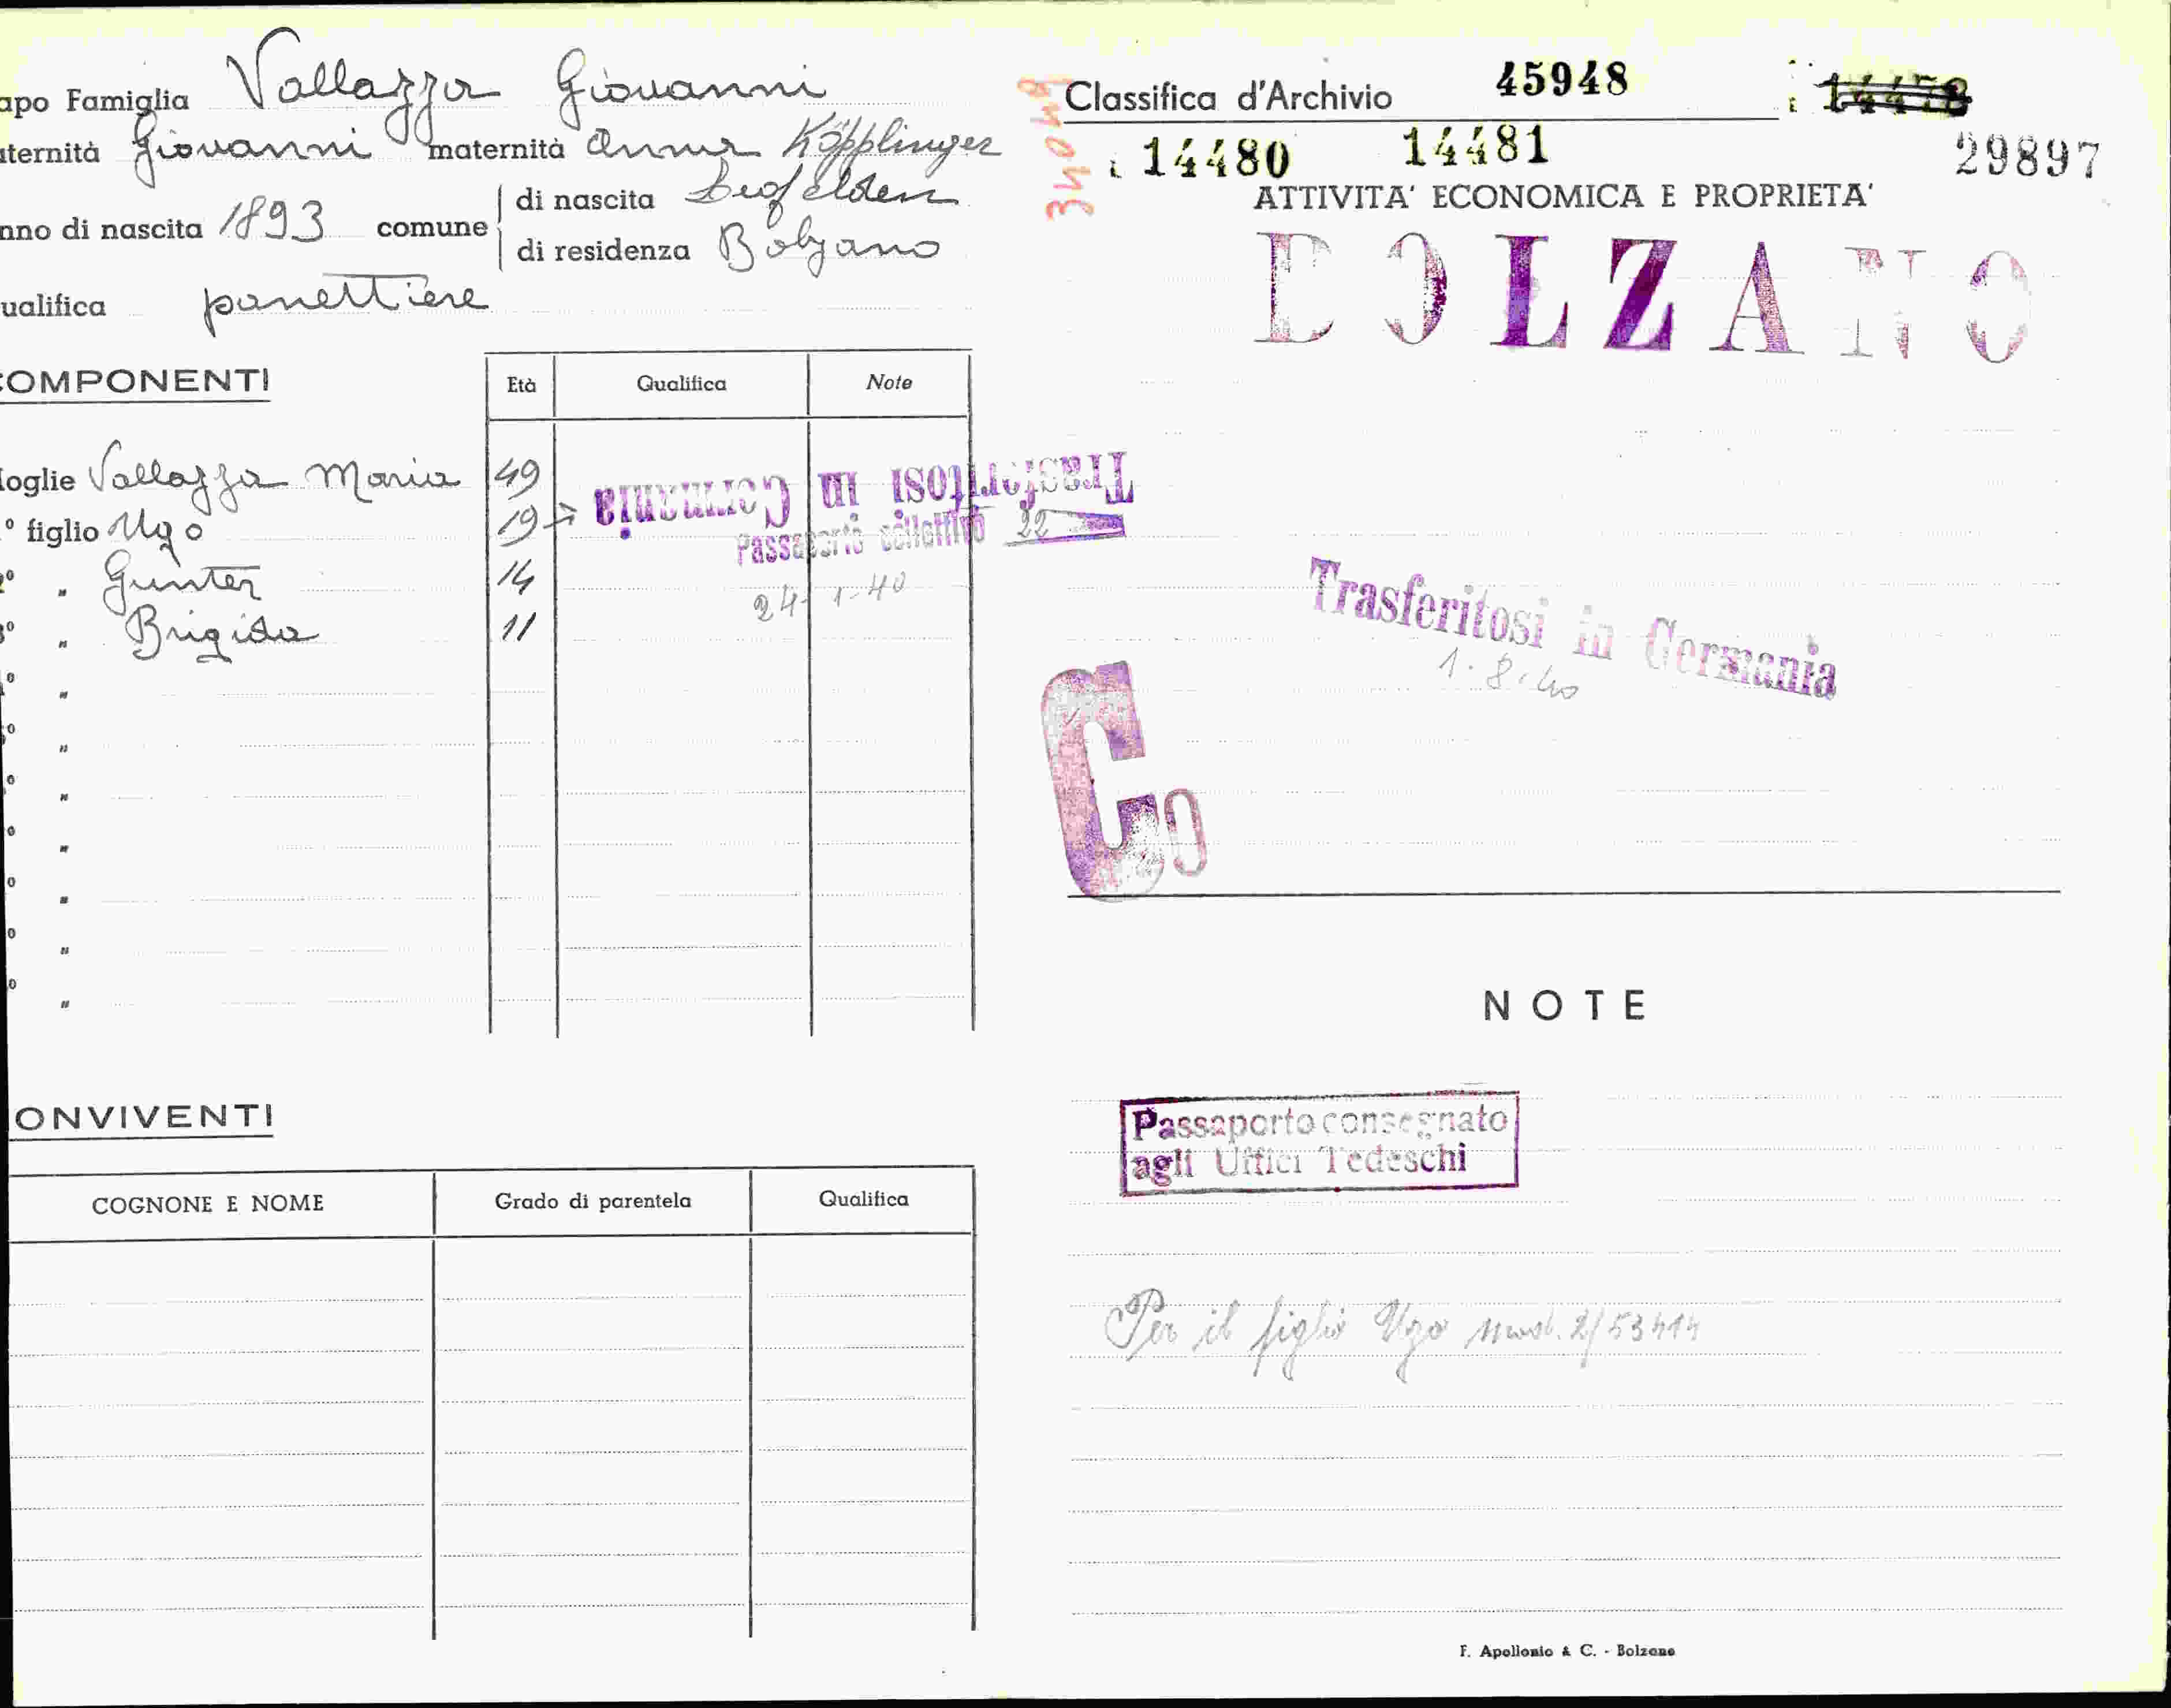 apo Famiglia Vallazza Giovanni
ternità Giovanni maternità Anna Köpplinger
nno di nascita 1893 comune di nascita
di residenza Bolzano
ualifica panettiere
OMPONENTI
Età Qualifica Note
oglie Vallazza Maria 49
° figlio Ugo 19
° " Gunter 14
° " Brigida 11
Trasferitosi in Germania
Passaporto collettivo 22
24-1-40
o "
o "
o "
o "
o "
o "
o "
ONVIVENTI
COGNONE E NOME Grado di parentela Qualifica
Classifica d'Archivio 45948
14480 14481
29897
ATTIVITA' ECONOMICA E PROPRIETA'
BOLZANO
Trasferitosi in Germania
1.8.40
C
NOTE
Passaporto consegnato
agli Uffici Tedeschi
Per il figlio Ugo mod. 2/53414
F. Apollonio & C. - Bolzano